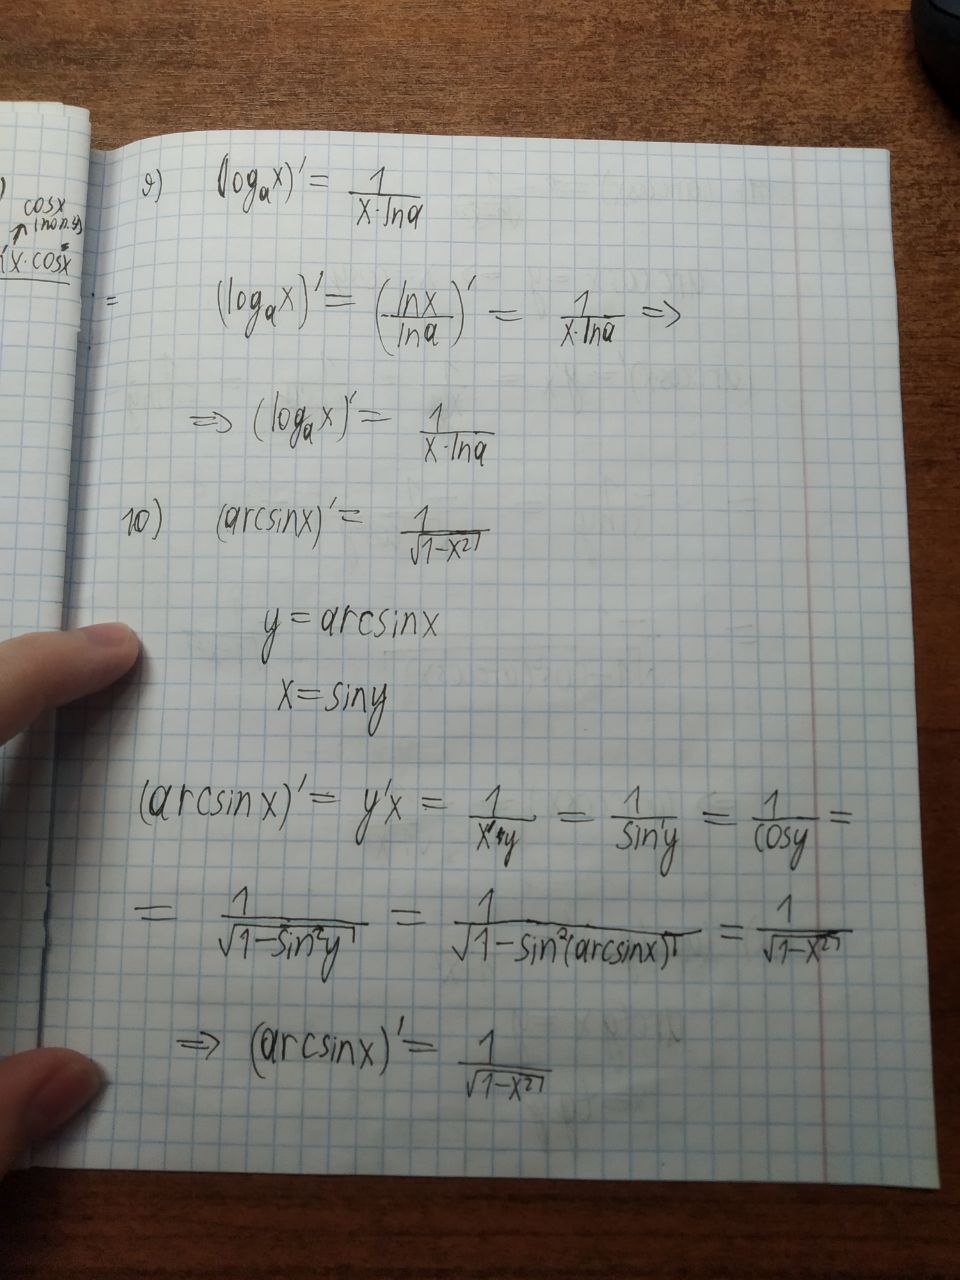 cosx
x·cosx
9) (logₐx)' = 1/(x·lna)
= (logₐx)' = (lnx/lna)' = 1/(x·lna) =>
=> (logₐx)' = 1/(x·lna)
10) (arcsinx)' = 1/√(1-x²)
y = arcsinx
x = siny
(arcsinx)' = y'x = 1/x'y = 1/sin'y = 1/cosy =
= 1/√(1-sin²y) = 1/√(1-sin²(arcsinx)) = 1/√(1-x²)
=> (arcsinx)' = 1/√(1-x²)